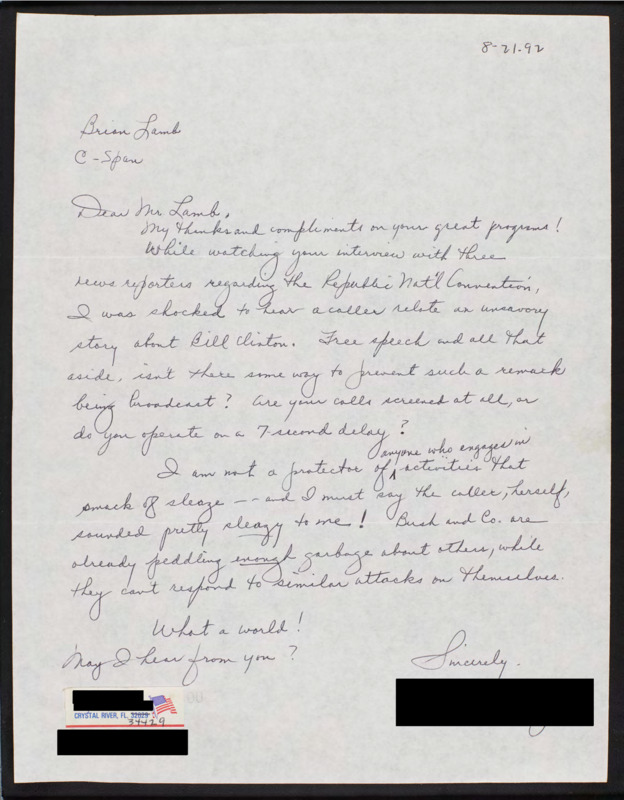 8-21-92
Brian Lamb
C-Span
Dear Mr. Lamb,
My thanks and compliments on your great programs!
While watching your interview with three
news reporters regarding the Republic Nat'l Convention,
I was shocked to hear a caller relate an unsavory
story about Bill Clinton. Free speech and all that
aside, isn't there some way to prevent such a remark
being broadcast? Are your calls screened at all, or
do you operate on a 7-second delay?
anyone who engages in
I am not a protector of ^ activities that
smack of sleaze -- and I must say the caller, herself,
sounded pretty sleazy to me! Bush and Co. are
already peddling enough garbage about others, while
they can't respond to similar attacks on themselves.
What a world!
May I hear from you?
Sincerely.
CRYSTAL RIVER, FL. 32629
34429